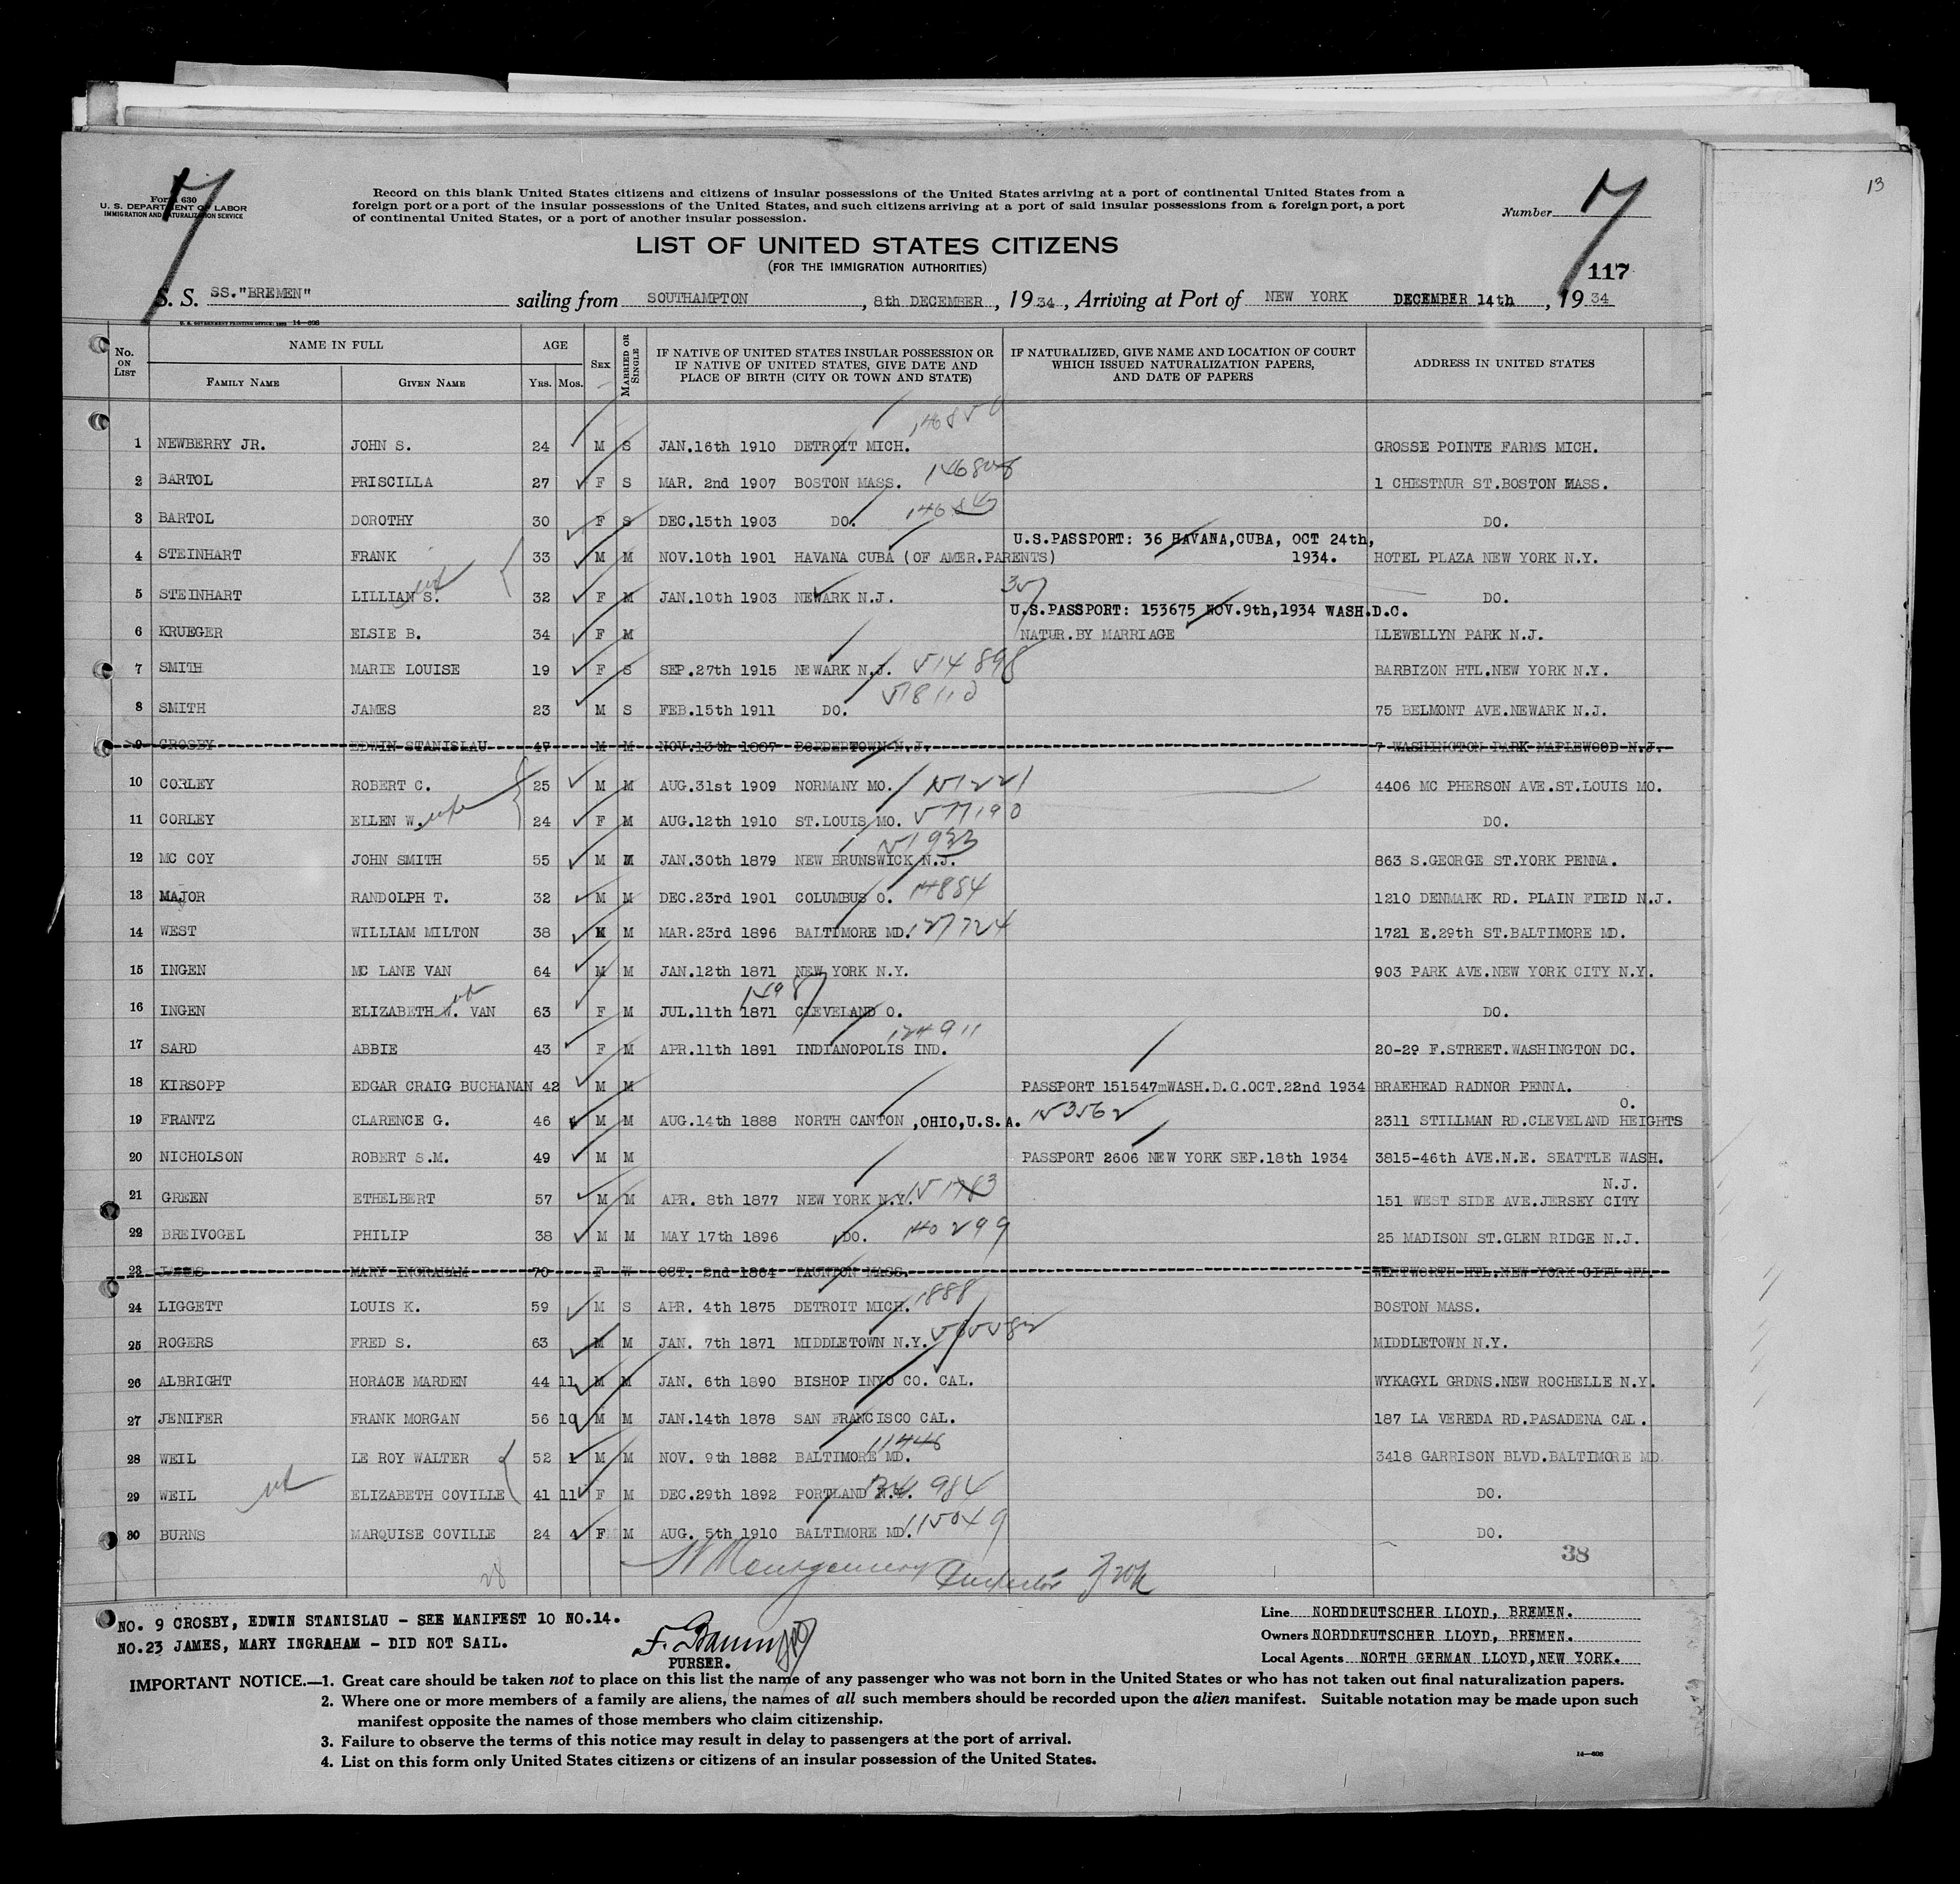 13
7
7
Form 630
U. S. DEPARTMENT OF LABOR
IMMIGRATION AND NATURALIZATION SERVICE
Record on this blank United States citizens and citizens of insular possessions of the United States arriving at a port of continental United States from a
foreign port or a port of the insular possessions of the United States, and such citizens arriving at a port of said insular possessions from a foreign port, a port
of continental United States, or a port of another insular possession.
Number
LIST OF UNITED STATES CITIZENS
(FOR THE IMMIGRATION AUTHORITIES)
117
S. S. SS."BREMEN" sailing from SOUTHAMPTON, 8th DECEMBER, 1934, Arriving at Port of NEW YORK DECEMBER 14th, 1934
No. ON LIST
NAME IN FULL
FAMILY NAME GIVEN NAME
AGE
YRS. MOS.
SEX
MARRIED OR SINGLE
IF NATIVE OF UNITED STATES INSULAR POSSESSION OR
IF NATIVE OF UNITED STATES, GIVE DATE AND
PLACE OF BIRTH (CITY OR TOWN AND STATE)
IF NATURALIZED, GIVE NAME AND LOCATION OF COURT
WHICH ISSUED NATURALIZATION PAPERS,
AND DATE OF PAPERS
ADDRESS IN UNITED STATES
1 NEWBERRY JR. JOHN S. 24 M S JAN.16th 1910 DETROIT MICH. GROSSE POINTE FARMS MICH.
2 BARTOL PRISCILLA 27 F S MAR. 2nd 1907 BOSTON MASS. 1 CHESTNUR ST.BOSTON MASS.
3 BARTOL DOROTHY 30 F S DEC.15th 1903 DO. DO.
U.S.PASSPORT: 36 HAVANA,CUBA, OCT 24th,
4 STEINHART FRANK 33 M M NOV.10th 1901 HAVANA CUBA (OF AMER.PARENTS) 1934. HOTEL PLAZA NEW YORK N.Y.
5 STEINHART LILLIAN S. 32 F M JAN.10th 1903 NEWARK N.J. DO.
U.S.PASSPORT: 153675 NOV.9th,1934 WASH.D.C.
6 KRUEGER ELSIE B. 34 F M NATUR.BY MARRIAGE LLEWELLYN PARK N.J.
7 SMITH MARIE LOUISE 19 F S SEP.27th 1915 NEWARK N.J. BARBIZON HTL.NEW YORK N.Y.
8 SMITH JAMES 23 M S FEB.15th 1911 DO. 75 BELMONT AVE.NEWARK N.J.
9 CROSBY EDWIN STANISLAU 47 M M NOV.13th 1887 BORDERTOWN N.J. 7 WASHINGTON PARK MAPLEWOOD N.J.
10 CORLEY ROBERT C. 25 M M AUG.31st 1909 NORMANY MO. 4406 MC PHERSON AVE.ST.LOUIS MO.
11 CORLEY EILEN W. 24 F M AUG.12th 1910 ST.LOUIS MO. DO.
12 MC COY JOHN SMITH 55 M M JAN.30th 1879 NEW BRUNSWICK N.J. 863 S.GEORGE ST.YORK PENNA.
13 MAJOR RANDOLPH T. 32 M M DEC.23rd 1901 COLUMBUS O. 1210 DENMARK RD. PLAIN FIELD N.J.
14 WEST WILLIAM MILTON 38 M M MAR.23rd 1896 BALTIMORE MD. 127724 1721 E.29th ST.BALTIMORE MD.
15 INGEN MC LANE VAN 64 M M JAN.12th 1871 NEW YORK N.Y. 903 PARK AVE.NEW YORK CITY N.Y.
16 INGEN ELIZABETH W. VAN 63 F M JUL.11th 1871 CLEVELAND O. DO.
124911
17 SARD ABBIE 43 F M APR.11th 1891 INDIANOPOLIS IND. 20-29 F.STREET.WASHINGTON DC.
18 KIRSOPP EDGAR CRAIG BUCHANAN 42 M M PASSPORT 151547mWASH.D.C.OCT.22nd 1934 BRAEHEAD RADNOR PENNA.
O.
19 FRANTZ CLARENCE G. 46 M M AUG.14th 1888 NORTH CANTON ,OHIO,U.S.A. 2311 STILLMAN RD.CLEVELAND HEIGHTS
20 NICHOLSON ROBERT S.M. 49 M M PASSPORT 2606 NEW YORK SEP.18th 1934 3815-46th AVE.N.E. SEATTLE WASH.
N.J.
21 GREEN ETHELBERT 57 M M APR. 8th 1877 NEW YORK N.Y. 151 WEST SIDE AVE.JERSEY CITY
22 BREIVOGEL PHILIP 38 M M MAY 17th 1896 DO. 140299 25 MADISON ST.GLEN RIDGE N.J.
23 MARY INGRAHAM 70 F W OCT. 2nd 1864 TAUNTON MASS. WENTWORTH HTL.NEW YORK CITY NY.
24 LIGGETT LOUIS K. 59 M S APR. 4th 1875 DETROIT MICH. 1888 BOSTON MASS.
25 ROGERS FRED S. 63 M M JAN. 7th 1871 MIDDLETOWN N.Y. MIDDLETOWN N.Y.
26 ALBRIGHT HORACE MARDEN 44 11 M M JAN. 6th 1890 BISHOP INYO CO. CAL. WYKAGYL GRDNS.NEW ROCHELLE N.Y.
27 JENIFER FRANK MORGAN 56 10 M M JAN.14th 1878 SAN FRANCISCO CAL. 187 LA VEREDA RD.PASADENA CAL.
11446
28 WEIL LE ROY WALTER 52 1 M M NOV. 9th 1882 BALTIMORE MD. 3418 GARRISON BLVD.BALTIMORE MD
29 WEIL ELIZABETH COVILLE 41 11 F M DEC.29th 1892 PORTLAND DO.
30 BURNS MARQUISE COVILLE 24 4 F M AUG. 5th 1910 BALTIMORE MD. 115049 DO.
38
28
NO. 9 CROSBY, EDWIN STANISLAU - SEE MANIFEST 10 NO.14.
NO.23 JAMES, MARY INGRAHAM - DID NOT SAIL.
PURSER.
Line NORDDEUTSCHER LLOYD, BREMEN.
Owners NORDDEUTSCHER LLOYD, BREMEN.
Local Agents NORTH GERMAN LLOYD,NEW YORK.
IMPORTANT NOTICE.—1. Great care should be taken not to place on this list the name of any passenger who was not born in the United States or who has not taken out final naturalization papers.
2. Where one or more members of a family are aliens, the names of all such members should be recorded upon the alien manifest. Suitable notation may be made upon such
manifest opposite the names of those members who claim citizenship.
3. Failure to observe the terms of this notice may result in delay to passengers at the port of arrival.
4. List on this form only United States citizens or citizens of an insular possession of the United States.